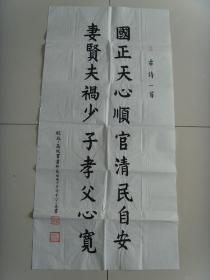 古詩一首
國正天心順官清民自安
妻賢夫禍少子孝父心寬